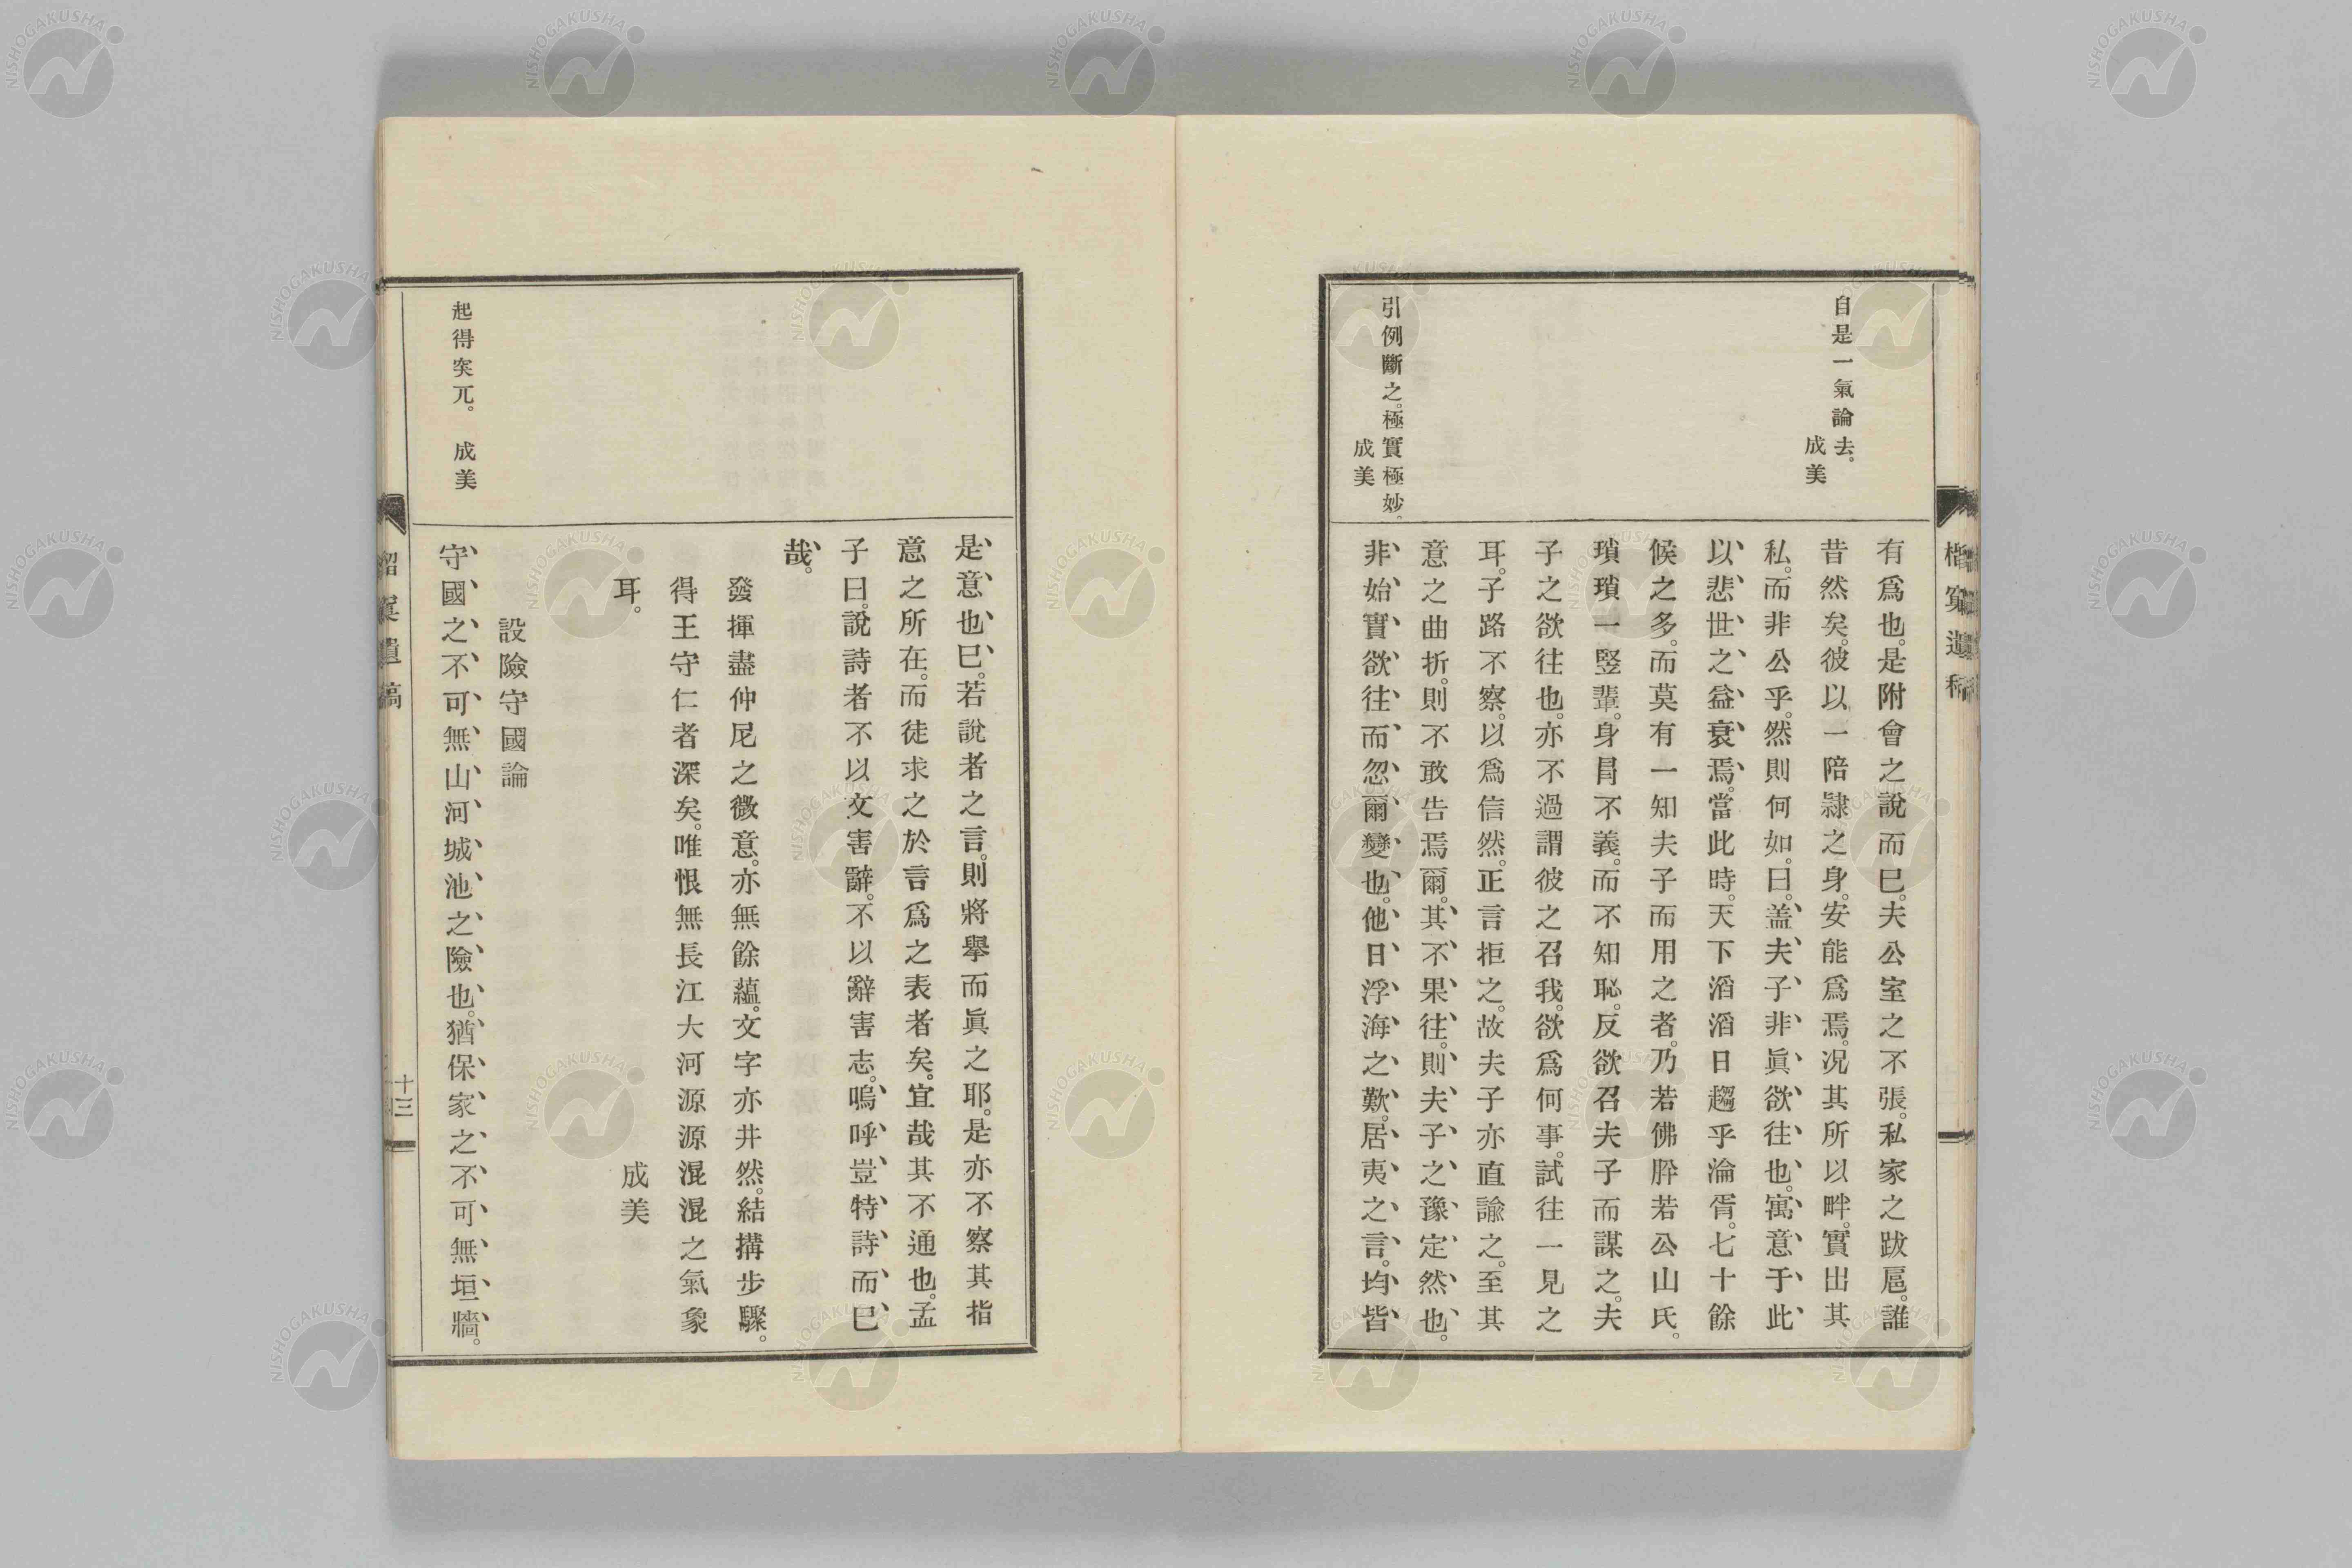 自是一氣論去。
成美
引例斷之。極實極妙。
成美
有爲也。是附會之說而已。夫公室之不張。私家之跋扈。誰
昔然矣。彼以一陪隷之身。安能爲焉。况其所以畔。實出其
私。而非公乎。然則何如。曰。盖夫子非眞欲往也。寓意于此
以悲世之益衰焉。當此時。天下滔滔日趨乎淪胥。七十餘
候之多。而莫有一知夫子而用之者。乃若佛肸若公山氏。
瑣瑣一竪輩。身冐不義。而不知恥。反欲召夫子而謀之。夫
子之欲往也。亦不過謂彼之召我。欲爲何事。試往一見之
耳。子路不察。以爲信然。正言拒之。故夫子亦直諭之。至其
意之曲折。則不敢告焉爾。其不果往。則夫子之豫定然也。
非始實欲往而忽爾變也。他日浮海之歎。居夷之言。均皆
是意也已。若說者之言。則將擧而眞之耶。是亦不察其指
意之所在。而徒求之於言爲之表者矣。宜哉其不通也。孟
子曰。說詩者不以文害辭。不以辭害志。嗚呼豈特詩而已
哉。
發揮盡仲尼之微意。亦無餘蘊。文字亦井然。結搆步驟。
得王守仁者深矣。唯恨無長江大河源源混混之氣象
耳。
成美
設險守國論
起得突兀。 成美
守國之不可無山河城池之險也。猶保家之不可無垣牆。
遺稿
十三
NISHOGAKUSHA